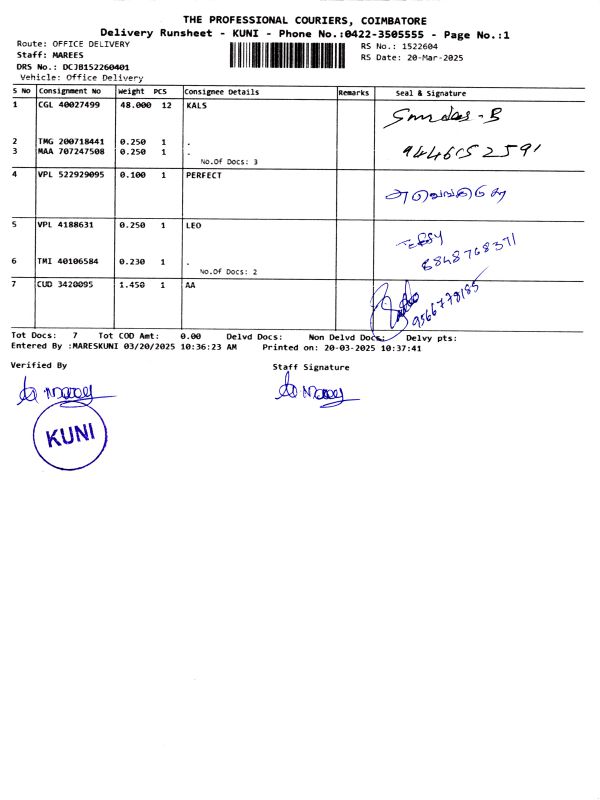 THE PROFESSIONAL COURIERS, COIMBATORE
Delivery Runsheet - KUNI - Phone No.:0422-3505555 - Page No.:1
Route: OFFICE DELIVERY
RS No.: 1522604
Staff: MAREES
RS Date: 20-Mar-2025
DRS No.: DCJB152260401
Vehicle: Office Delivery
S No Consignment No Weight PCS Consignee Details Remarks Seal & Signature
1 CGL 40027499 48.000 12 KALS
2 TMG 200718441 0.250 1 .
3 MAA 707247508 0.250 1 .
No.Of Docs: 3
4 VPL 522929095 0.100 1 PERFECT
5 VPL 4188631 0.250 1 LEO
8848768371
6 TMI 40106584 0.230 1 .
No.Of Docs: 2
7 CUD 3420095 1.450 1 AA
Tot Docs: 7 Tot COD Amt: 0.00 Delvd Docs: Non Delvd Docs: Delvy pts:
Entered By :MARESKUNI 03/20/2025 10:36:23 AM Printed on: 20-03-2025 10:37:41
Verified By Staff Signature
KUNI